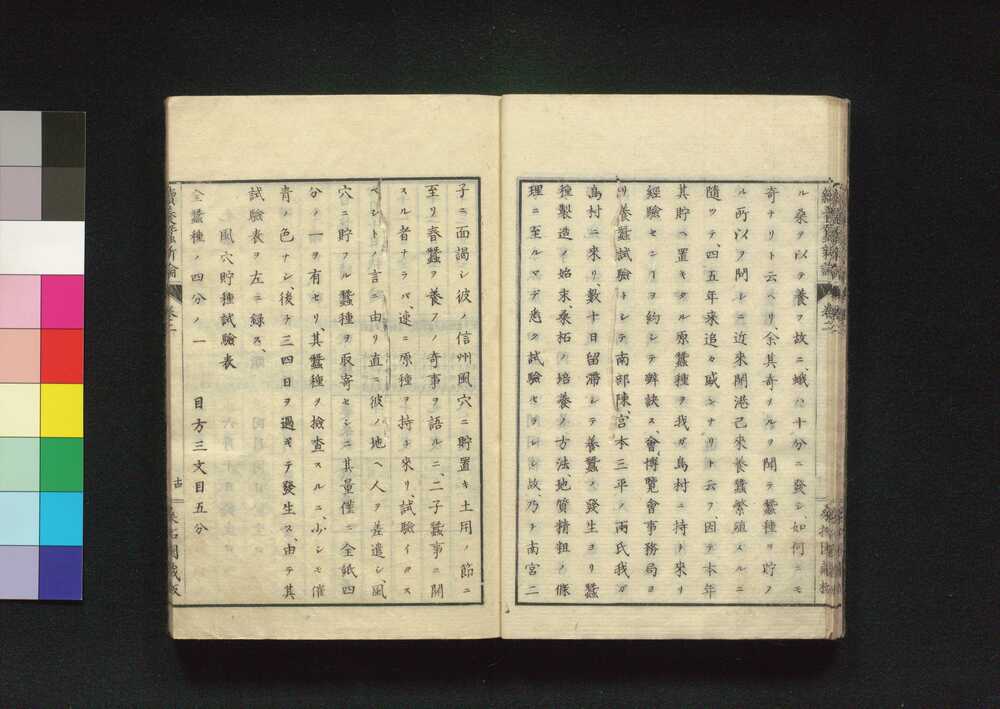 ル桑ヲ以テ養フ故ニ、蛾ハ十分ニ發シ、如何ニモ
奇ナリト云ベリ、余其奇ナルヲ聞テ蠶種ヲ貯ノ
ル所以ヲ問シニ近來開港己來養蠶繁殖スルニ
随ツテ、四五年来追々盛ンナリト云フ、因テ本年
其貯ヘ置キタル原蠶種ヲ我ガ島村ニ持ト來リ
經驗センコヲ約シテ辭訣ス、會博覽會事務局ヨ
リ養蠶試驗トシテ南部陳、宮本三平ノ兩氏我ガ
島村ニ來リ、數十日留滞シテ養蠶ノ發生ヨリ蠶
種製造ノ始末、桑拓ノ培養ノ方法、地質精粗ノ條
理ニ至ルマデ悉ク試驗セラレシ故、乃チ南宮二
子ニ面謁シ彼ノ信州風穴ニ貯置キ土用ノ節ニ
至リ春蠶ヲ養フノ奇事ヲ語ルニ、二子蠶事ニ關
スル者ナラバ、速ニ原種ヲ持チ來リ、試驗イタス
ベシトノ言ニ由リ直ニ彼ノ地ヘ人ヲ差遣シ、風
穴ニ貯フル蠶種ヲ取寄セシニ其量僅ニ全紙四
分ノ一ヲ有セリ、其蠶種ヲ檢査スルニ、少シモ催
青ノ色ナシ、後チ三四日ヲ過ギテ發生ス、由テ其
試驗表ヲ左ニ録ス、
風穴貯種試驗表
全蠶種ノ四分ノ一 目方三文目五分
續養蠶新論 卷二